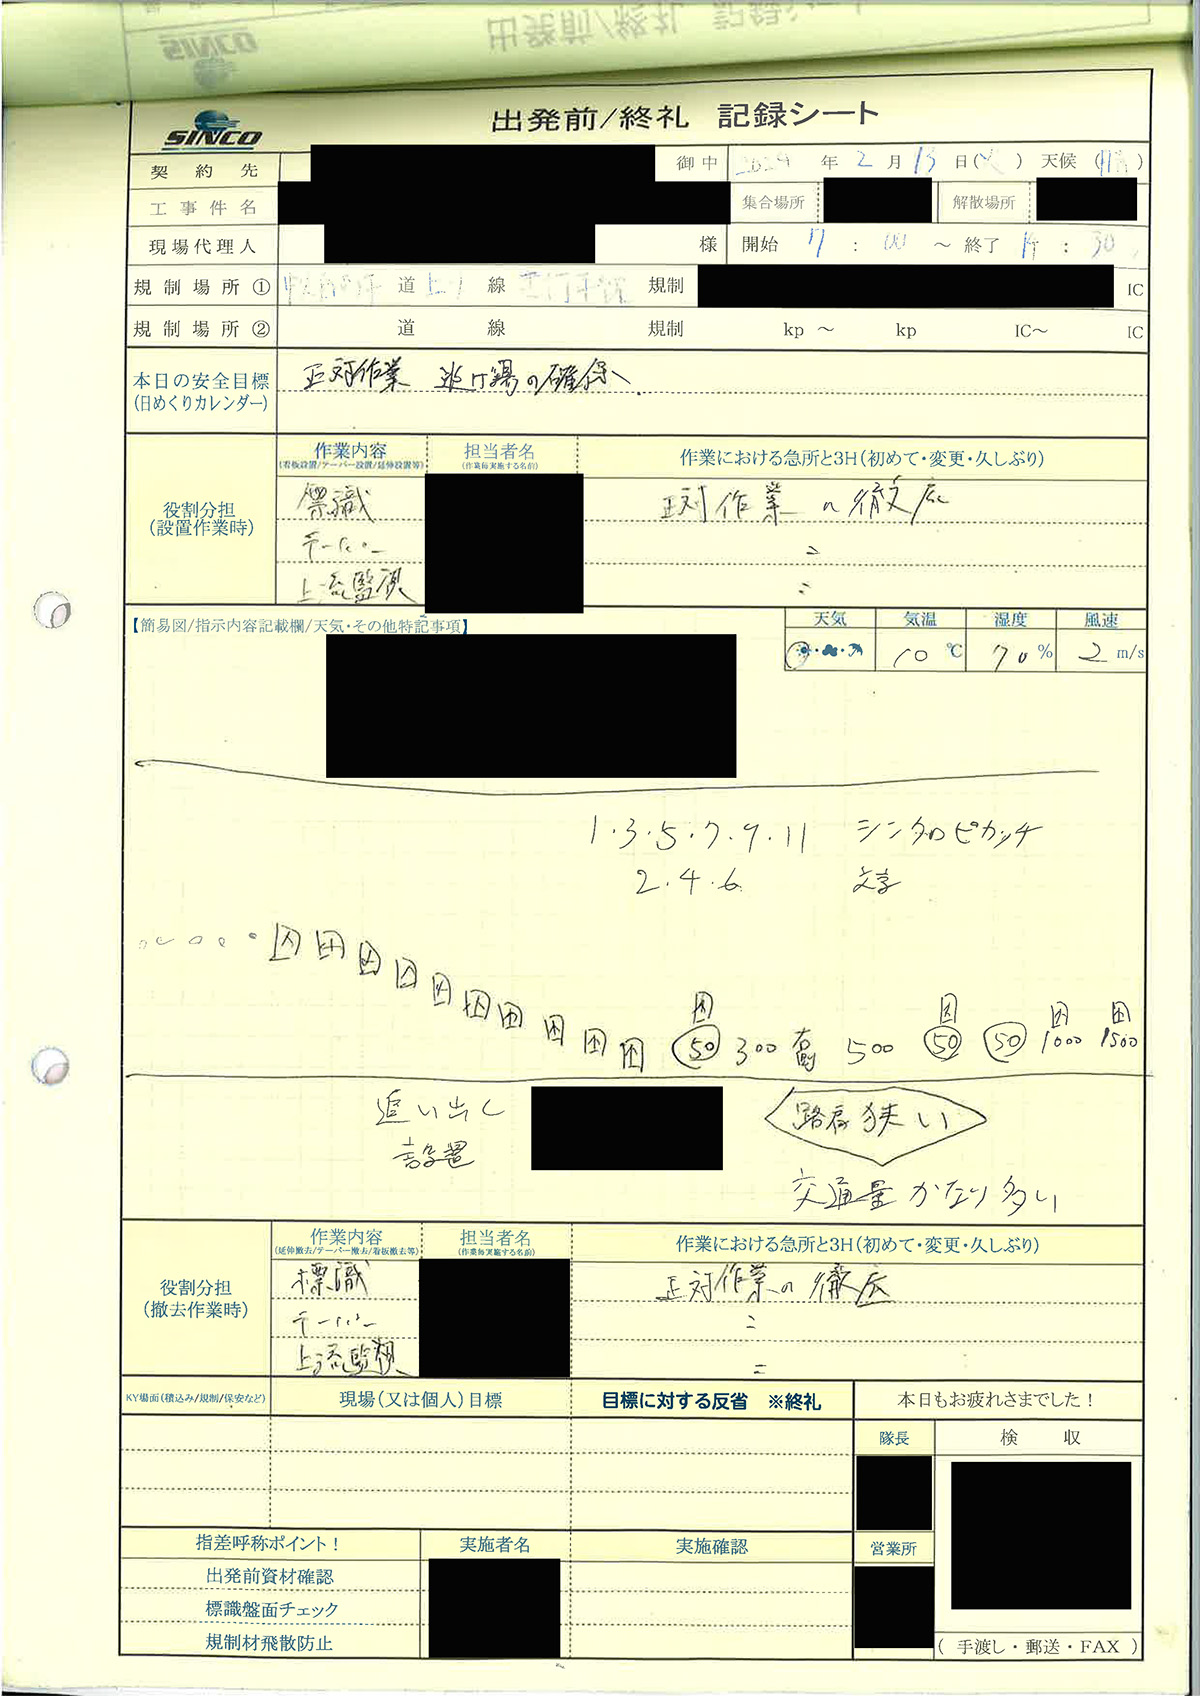 SINCO
出発前/終礼 記録シート
契約先 御中 年 2 月 13 日( ) 天候( )
工事件名 集合場所 解散場所
現場代理人 様 開始 : 00 ～ 終了 : 30
規制場所① 道 上り 線 規制 IC
規制場所② 道 線 規制 kp ～ kp IC～ IC
本日の安全目標
(日めくりカレンダー)
正対作業 逃げ場の確保
役割分担
(設置作業時)
作業内容 担当者名 作業における急所と3H(初めて・変更・久しぶり)
(看板設置/テーパー設置/延伸設置等) (作業毎実施する名前)
標識 正対作業の徹底
テーパー 〃
上流監視 〃
【簡易図/指示内容記載欄/天気・その他特記事項】
天気 気温 湿度 風速
10 ℃ 70 % 2 m/s
1・3・5・7・9・11 シンクロピカッチ
2・4・6 文字
50 300 500 50 50 1000 1500
追い出し
設置
路肩狭い
交通量かなり多い
役割分担
(撤去作業時)
作業内容 担当者名 作業における急所と3H(初めて・変更・久しぶり)
(延伸撤去/テーパー撤去/看板撤去等) (作業毎実施する名前)
標識 正対作業の徹底
テーパー 〃
上流監視 〃
KY場面(積込み/規制/保安など) 現場(又は個人)目標 目標に対する反省 ※終礼 本日もお疲れさまでした！
隊長 検収
指差呼称ポイント！ 実施者名 実施確認 営業所
出発前資材確認
標識盤面チェック
規制材飛散防止
( 手渡し・郵送・FAX )